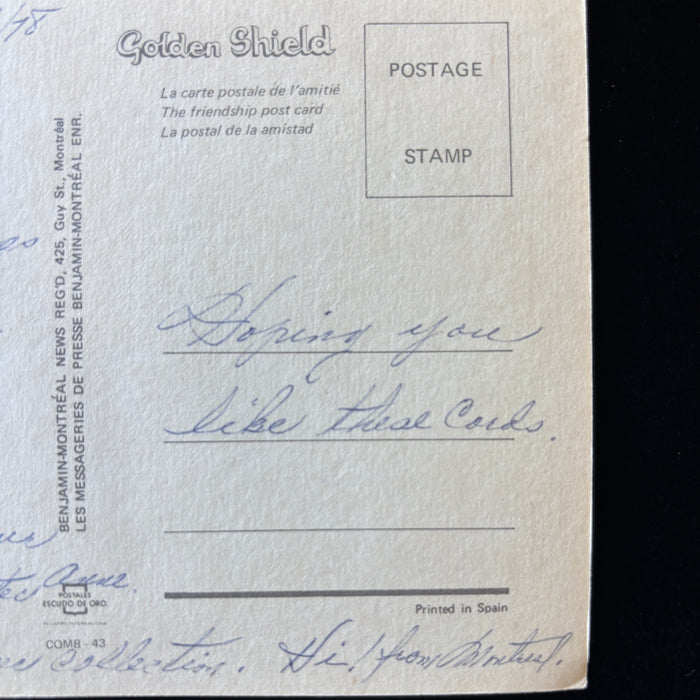 /78
Golden Shield
La carte postale de l'amitié
The friendship post card
La postal de la amistad
POSTAGE
STAMP
BENJAMIN-MONTRÉAL NEWS REG'D, 425, Guy St., Montréal
LES MESSAGERIES DE PRESSE BENJAMIN-MONTRÉAL ENR.
Hoping you
like these Cards.
Anne
POSTALES
ESCUDO DE ORO
Printed in Spain
COMB - 43
collection. Hi! from Montreal.